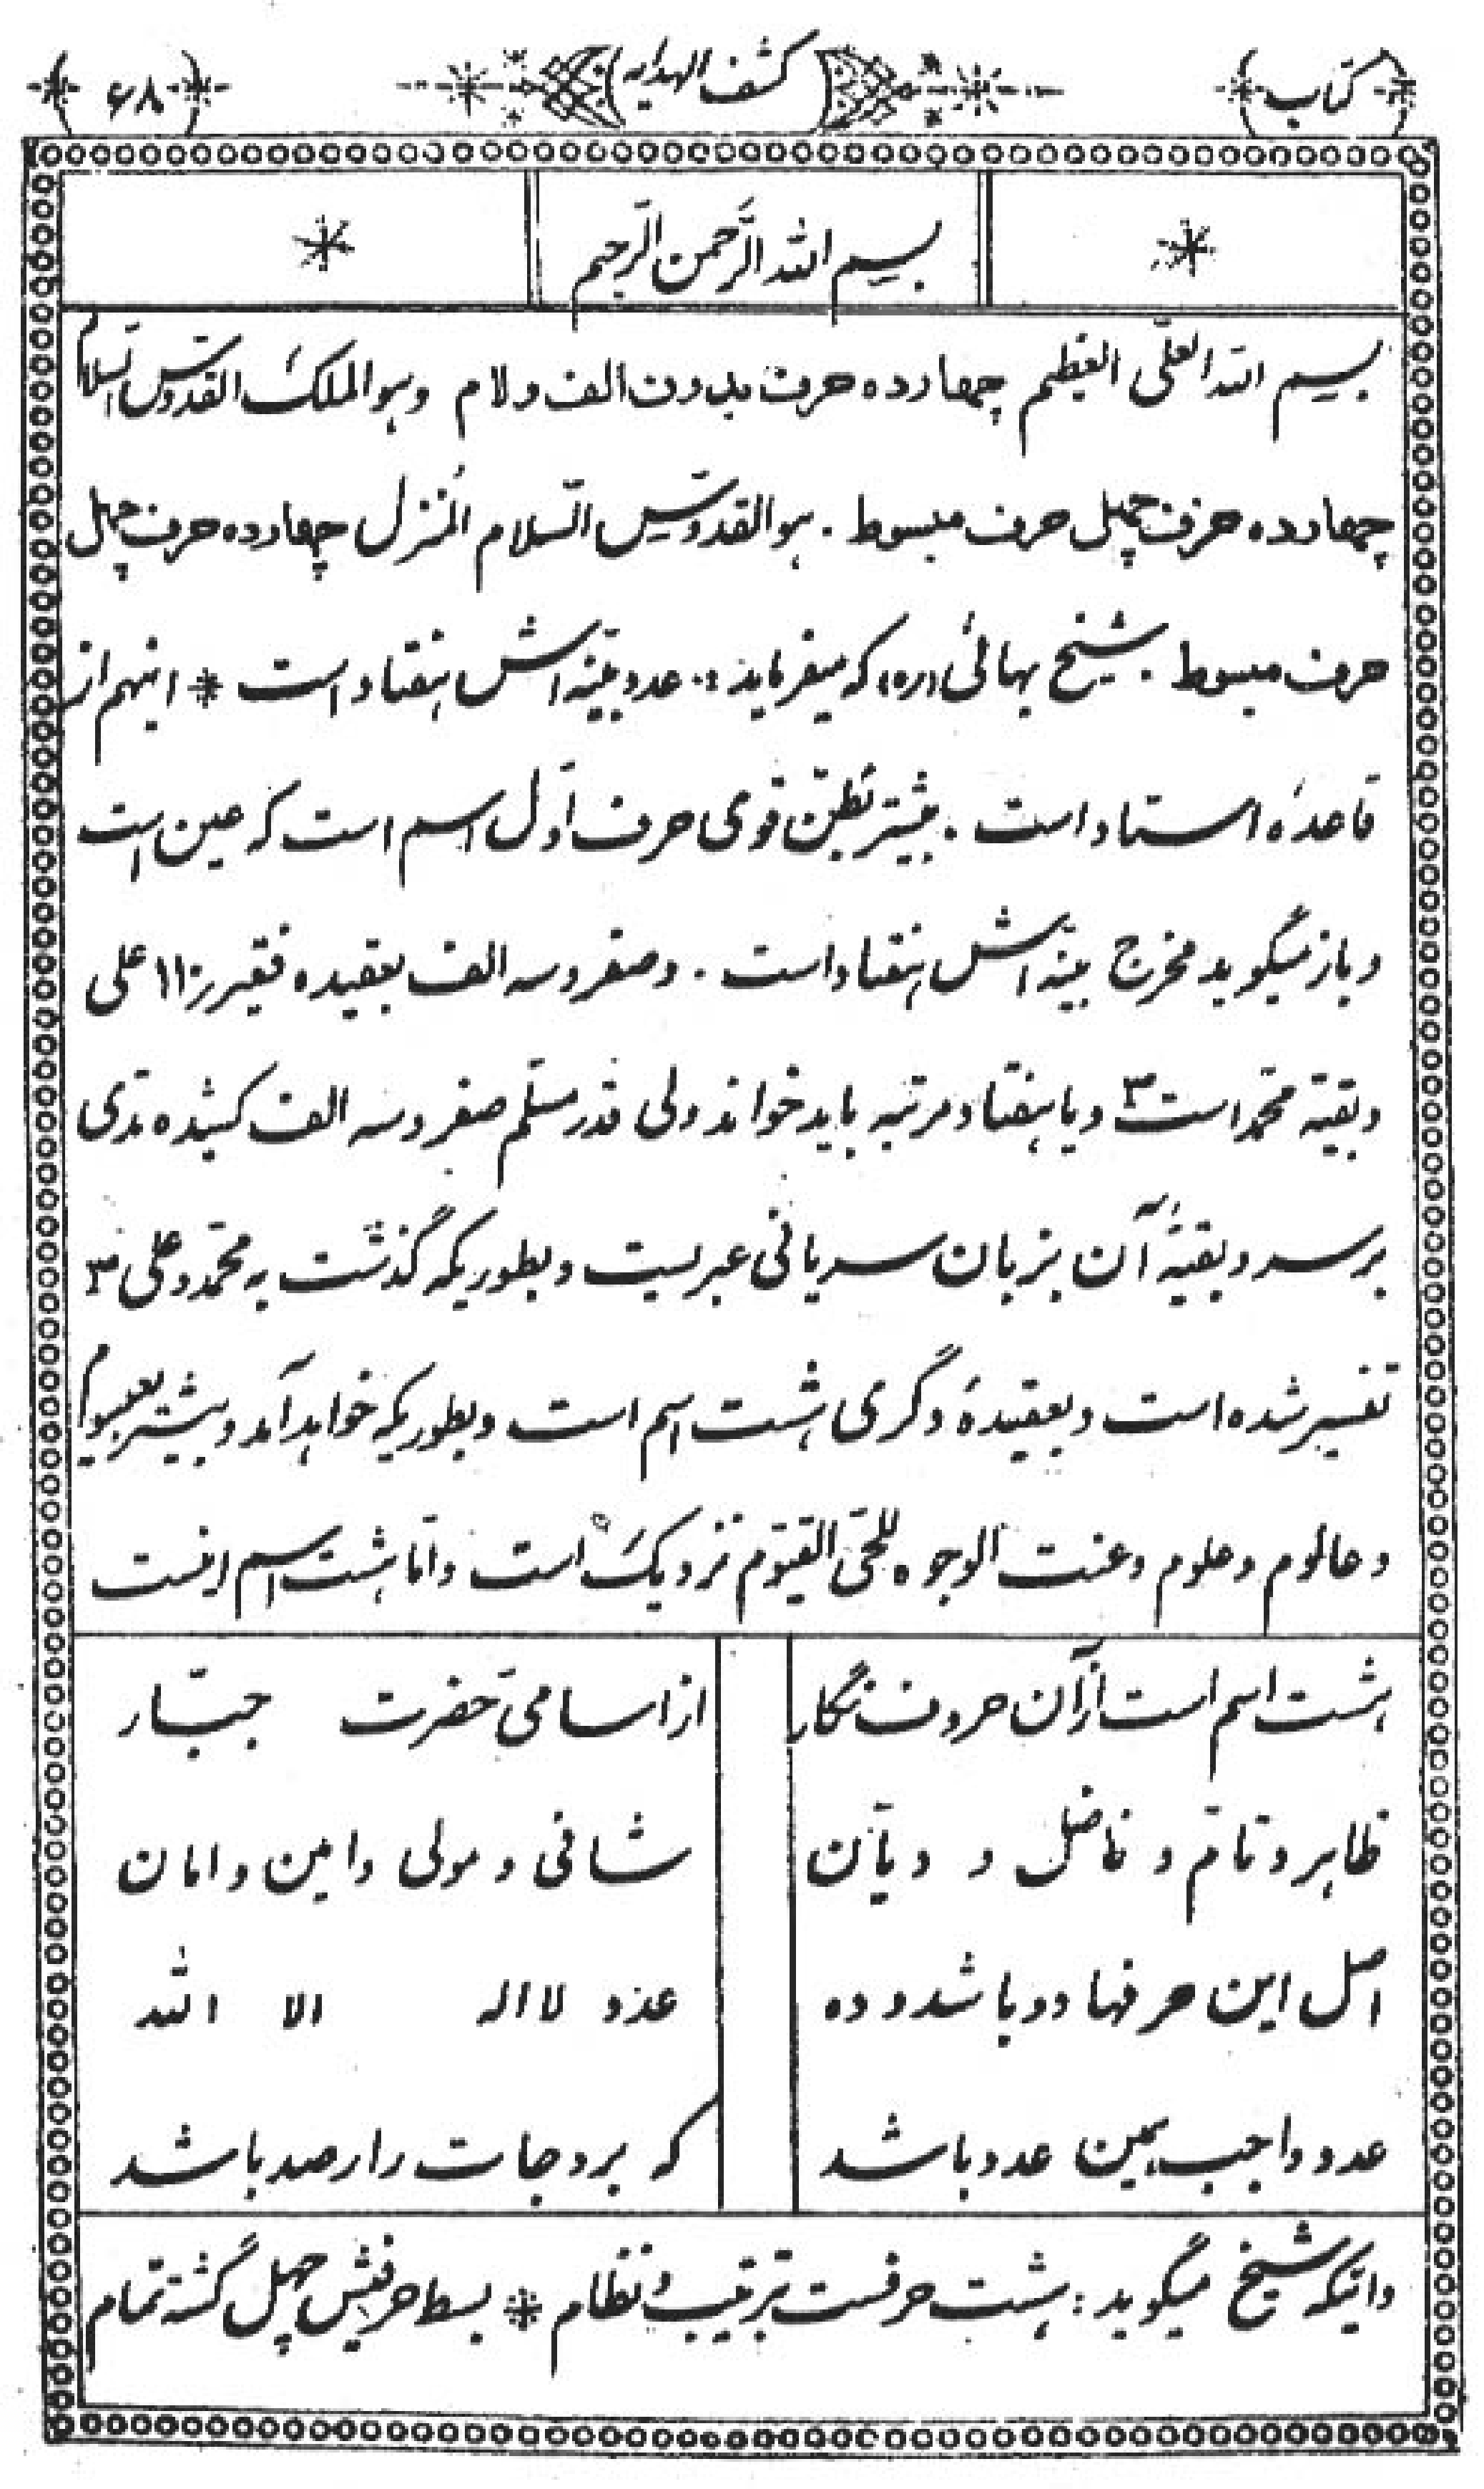 کتاب
کشف الهدایه
۶۸
بسم الله الرَّحمن الرَّحیم
بسم الله العلّی العظیم چهارده حرف بدون الف ولام وهوالملک القدوّس السّلام
چهارده حرف چهل حرف مبسوط . هوالقدوّس السّلام المُنزل چهارده حرف چهل
حرف مبسوط . شیخ بهائی (ره) که میفرماید : عدد بیّنه اش هفتاد است * اینهم از
قاعدهٔ استاد است . بیشتر بظنّ قوی حرف اوّل اسم است که عین است
و باز میگوید مخرج بیّنه اش هفتاد است . وصفر وسه الف بعقیده فقیر ۱۱۰ علی
وبقیّه محمّد است ۳ ویا هفتاد مرتبه باید خواند ولی قدر مسلّم صفر وسه الف کشیده مدّی
برسر و بقیّهٔ آن بزبان سریانی عبریست و بطوریکه گذشت به محمّد و علی ۳
تفسیر شده است و بعقیدهٔ دگری هشت اسم است و بطوریکه خواهد آمد و بیشتر
وعالوم وعلوم وعنت الوجوه للحیّ القیّوم نزدیک است وامّا هشت اسم اینست
هشت اسم است ازآن حروف نگار
از اسامیّ حضرت جبّار
ظاهر و تامّ و فاضل و دیّان
شافی و مولی و امین و امان
اصل این حرفها دو باشد و ده
عدد لااله الا الله
عدد واجب همین عدد باشد
که بر درجات را رصد باشد
واینکه شیخ میگوید : هشت حرفست بترتیب ونظام * بسط حرفیش چهل گشته تمام